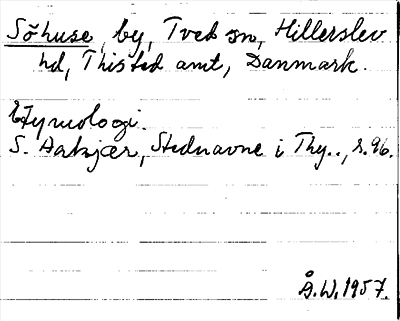 Söhuse, by, Tved sn, Hillerslev
hd, Thisted amt, Danmark.
Etymologi.
S. Aakjær, Stednavne i Thy.., s. 96.
Å.W. 1957.